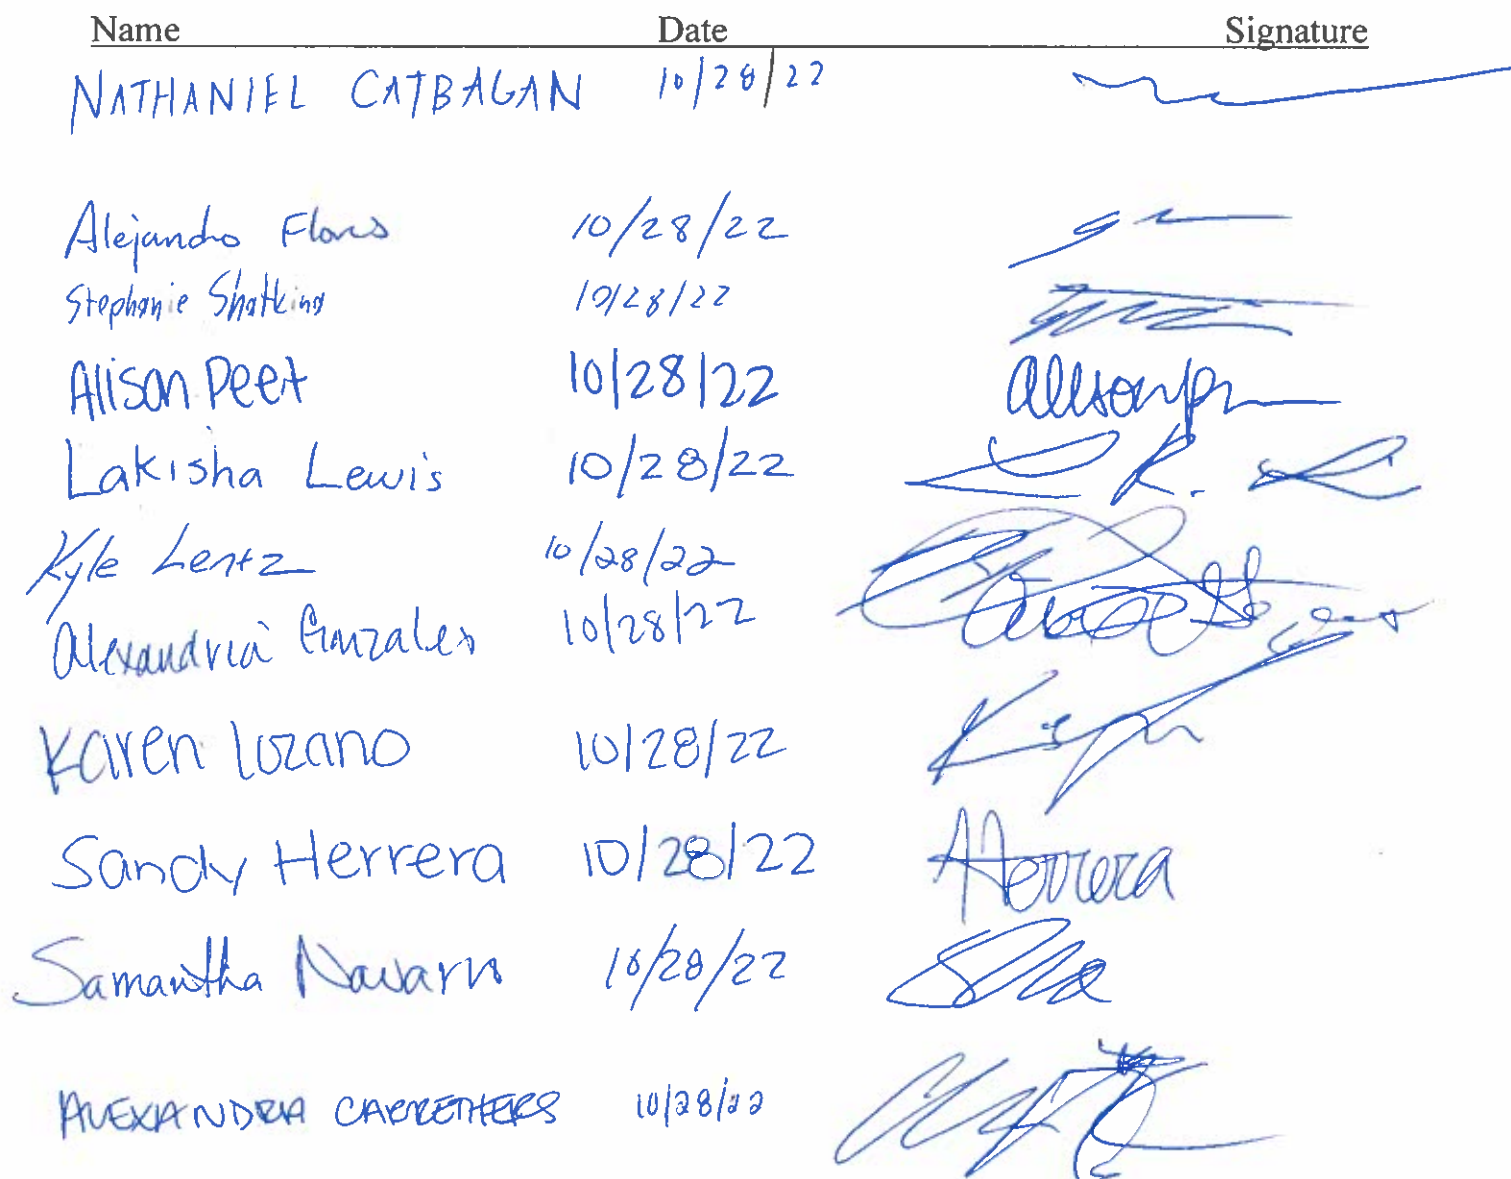 Name Date Signature
NATHANIEL CATBAGAN 10/28/22
Alejandro Flores 10/28/22
Stephanie Shatkins 10/28/22
Alison Peet 10/28/22
Lakisha Lewis 10/28/22 L R. L
Kyle Lentz 10/28/22
Alexandria Gonzales 10/28/22
Karen Lozano 10/28/22
Sandy Herrera 10/28/22 Herrera
Samantha Navarro 10/28/22
ALEXANDRA CARRETHERS 10/28/22